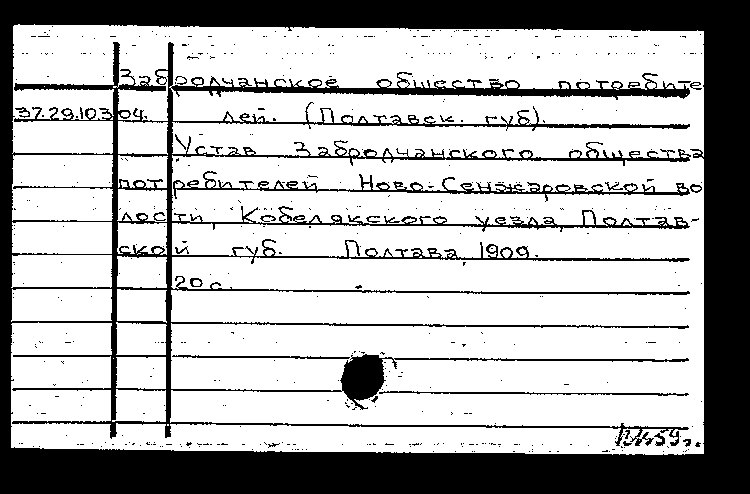 Забродчанское общество потребите
37.29.103 04. лей. (Полтавск. губ).
Устав Забродчанского общества
потребителей Ново-Сенжаровской во
лости, Кобелякского уезда, Полтав-
ской губ. Полтава, 1909.
20 с.